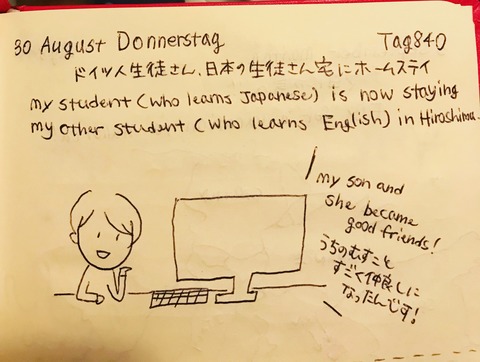 30 August Donnerstag Tag840
ドイツ人生徒さん、日本の生徒さん宅にホームステイ
my student (who learns Japanese) is now staying
my other student (who learns English) in Hiroshima.
my son and
she became
good friends!
うちのむすこと
すごく仲良しに
なったんです!